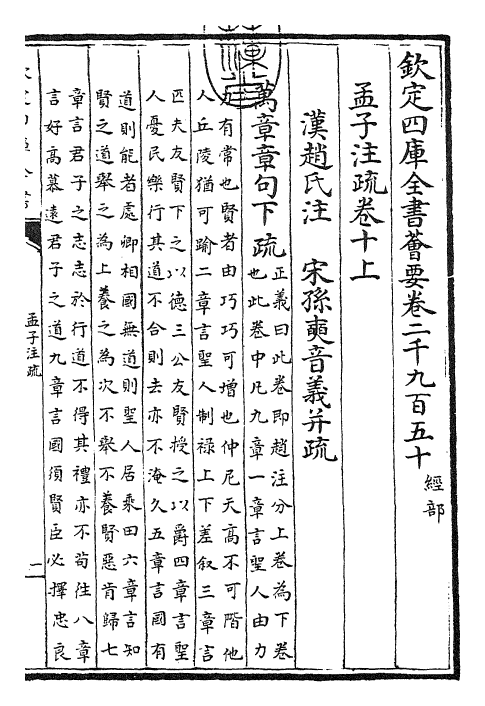 欽定四庫全書薈要卷二千九百五十 經部
孟子注疏卷十上
漢趙氏注 宋孫奭音義并疏
萬章章句下 疏
正義曰此卷即趙注分上卷為下卷
也此卷中凡九章一章言聖人由力
力有常也賢者由巧巧可增也仲尼天高不可階他
人丘陵猶可踰二章言聖人制禄上下差叙三章言
匹夫友賢下之以德三公友賢授之以爵四章言聖
人憂民樂行其道不合則去亦不淹久五章言國有
道則能者處卿相國無道則聖人居乘田六章言知
賢之道舉之為上養之為次不舉不養賢惡肯歸七
章言君子之志志於行道不得其禮亦不苟往八章
言好高慕遠君子之道九章言國須賢臣必擇忠良
孟子注疏